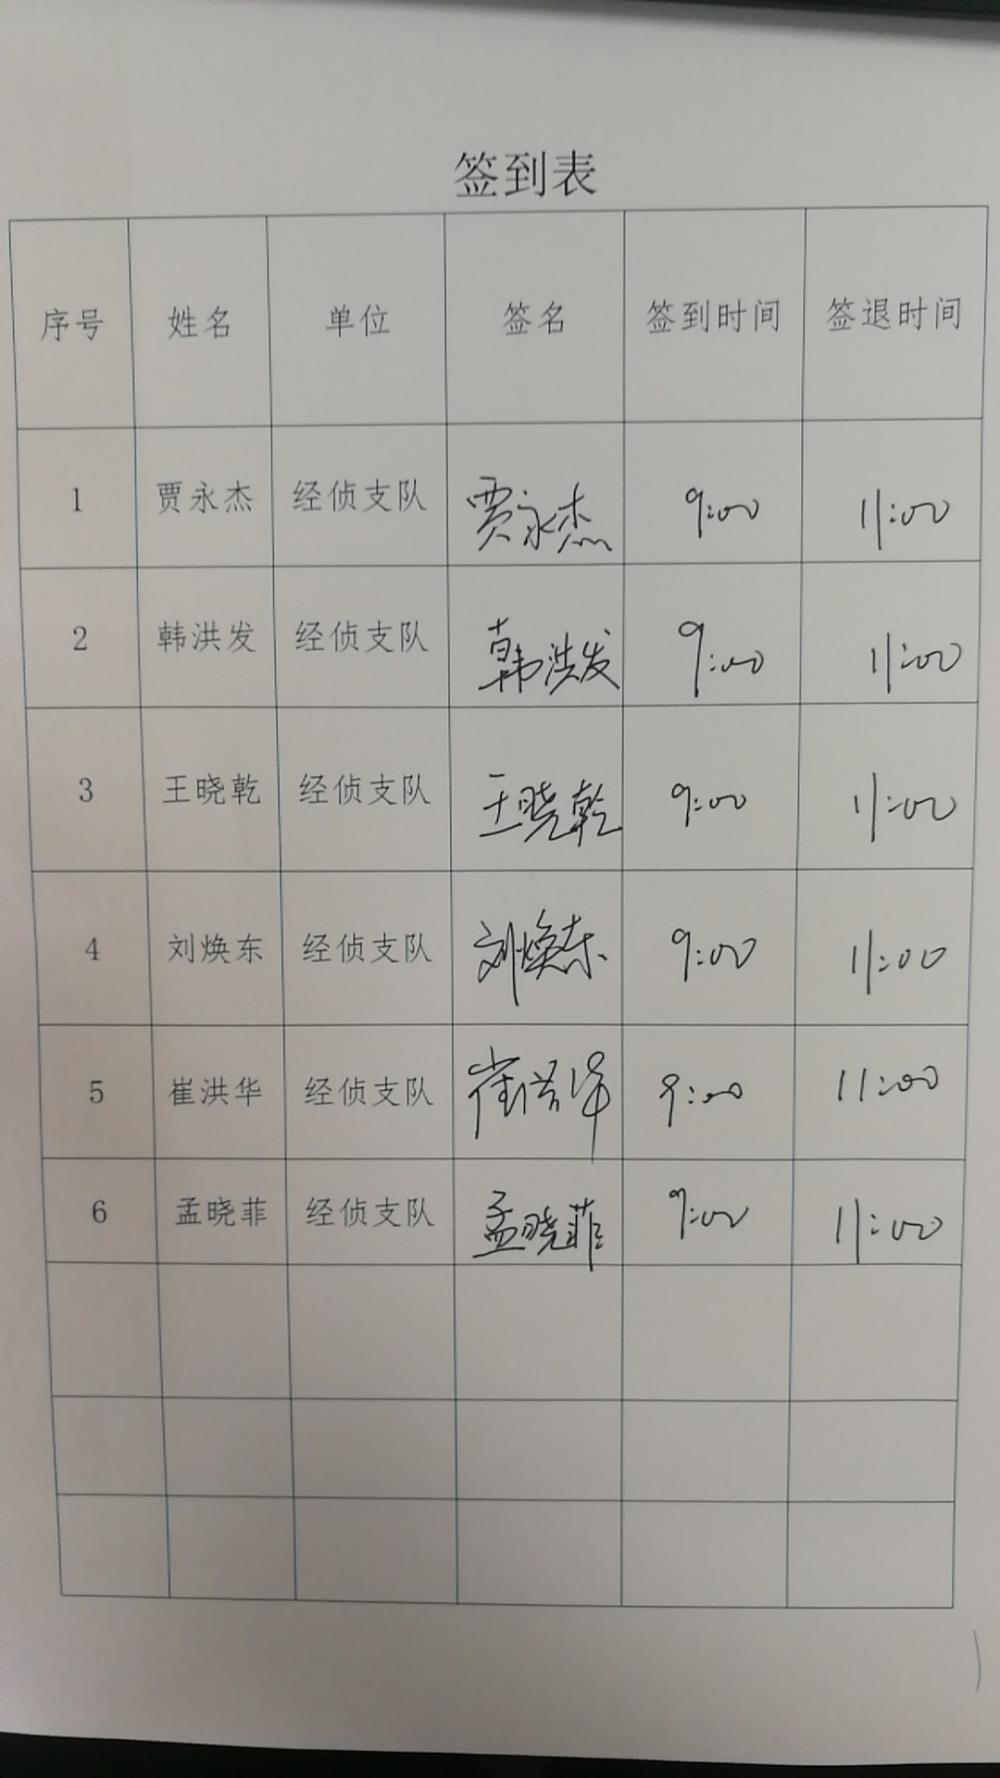 签到表
序号 姓名 单位 签名 签到时间 签退时间
1 贾永杰 经侦支队 贾永杰 9:00 11:00
2 韩洪发 经侦支队 韩洪发 9:00 11:00
3 王晓乾 经侦支队 王晓乾 9:00 11:00
4 刘焕东 经侦支队 刘焕东 9:00 11:00
5 崔洪华 经侦支队 崔洪华 9:00 11:00
6 孟晓菲 经侦支队 孟晓菲 9:00 11:00